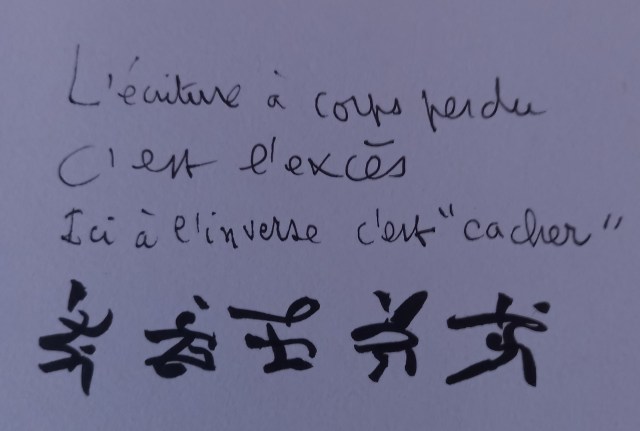 L'écriture à corps perdu
C'est l'excès
Ici à l'inverse c'est "cacher"